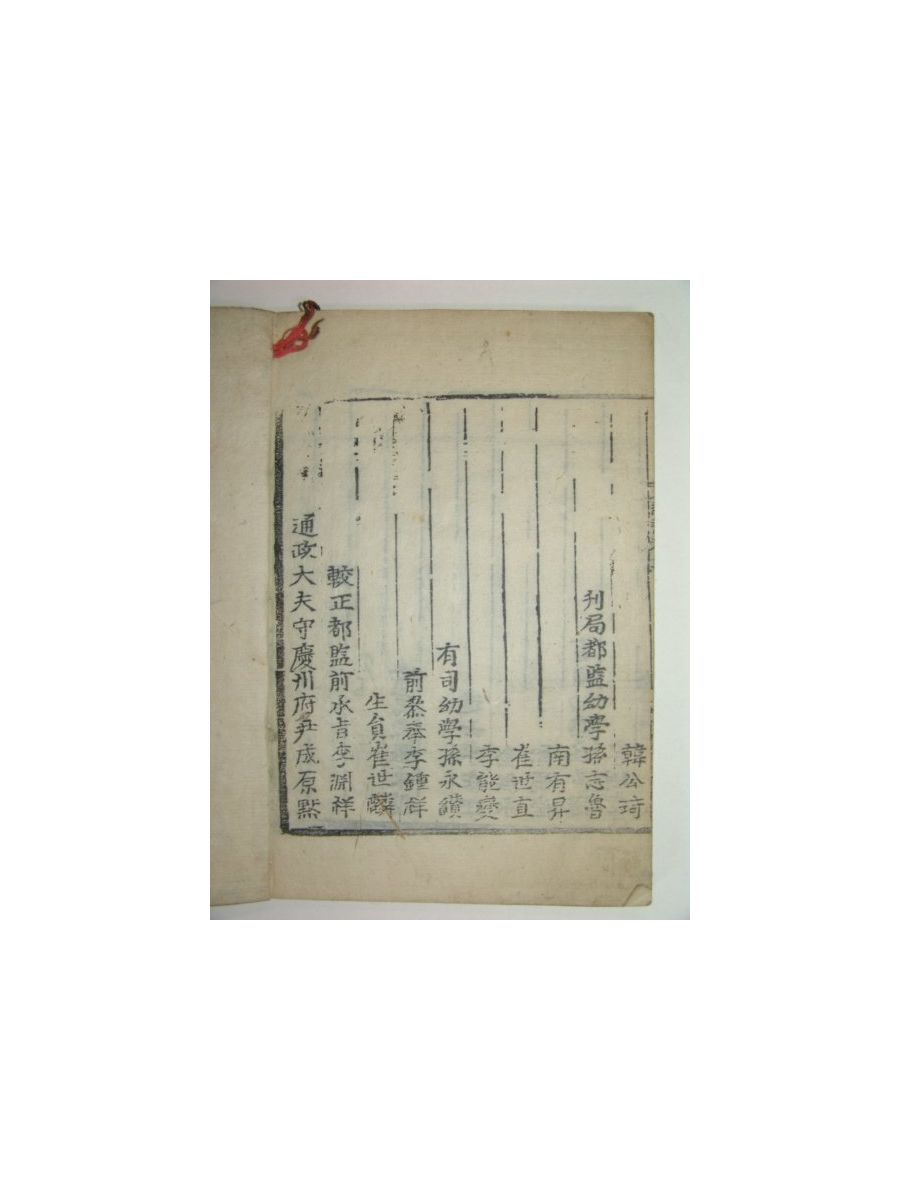 韓公琦
刋局都監幼學孫志魯
南有昇
崔世直
李能燮
有司幼學孫永鑽
前叅奉李鍾祥
生貟崔世麟
較正都監前承旨李淵祥
通政大夫守慶州府尹成原黙